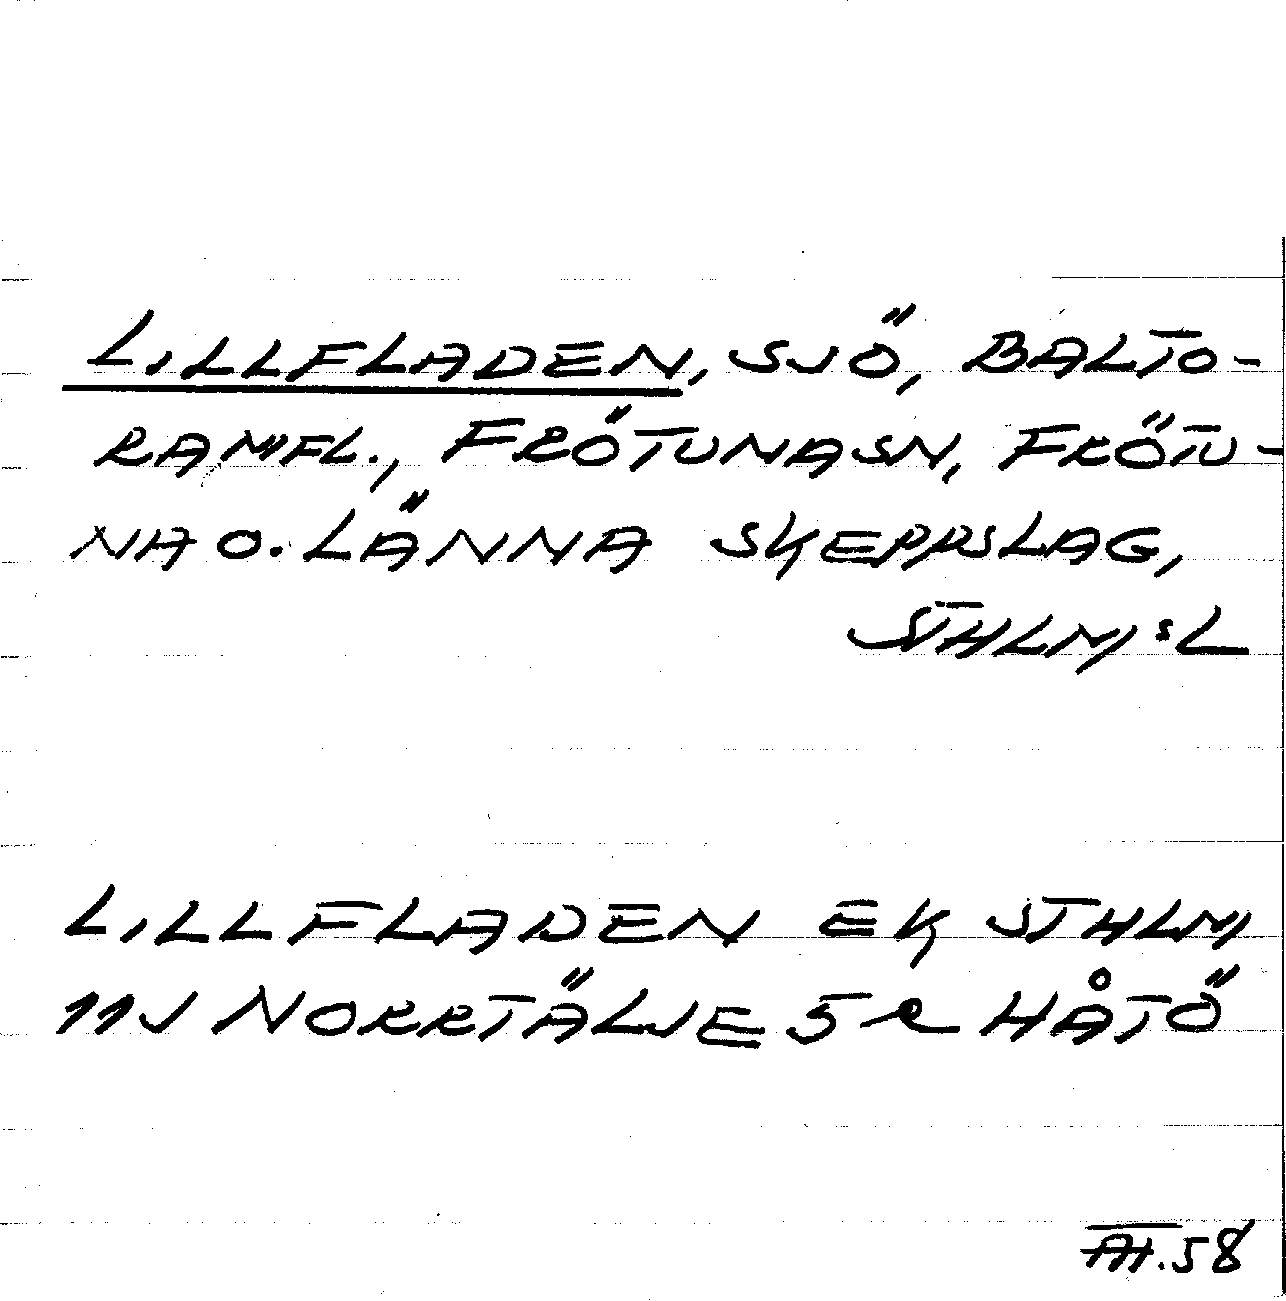 LILLFLADEN, SJÖ, BALTO-
RAMFL., FRÖTUNASN, FRÖTU-
NA O. LÄNNA SKEPPSLAG,
STHLM:S L
LILLFLADEN EK STHLM
11J NORRTÄLJE 5 R HÅTÖ
58